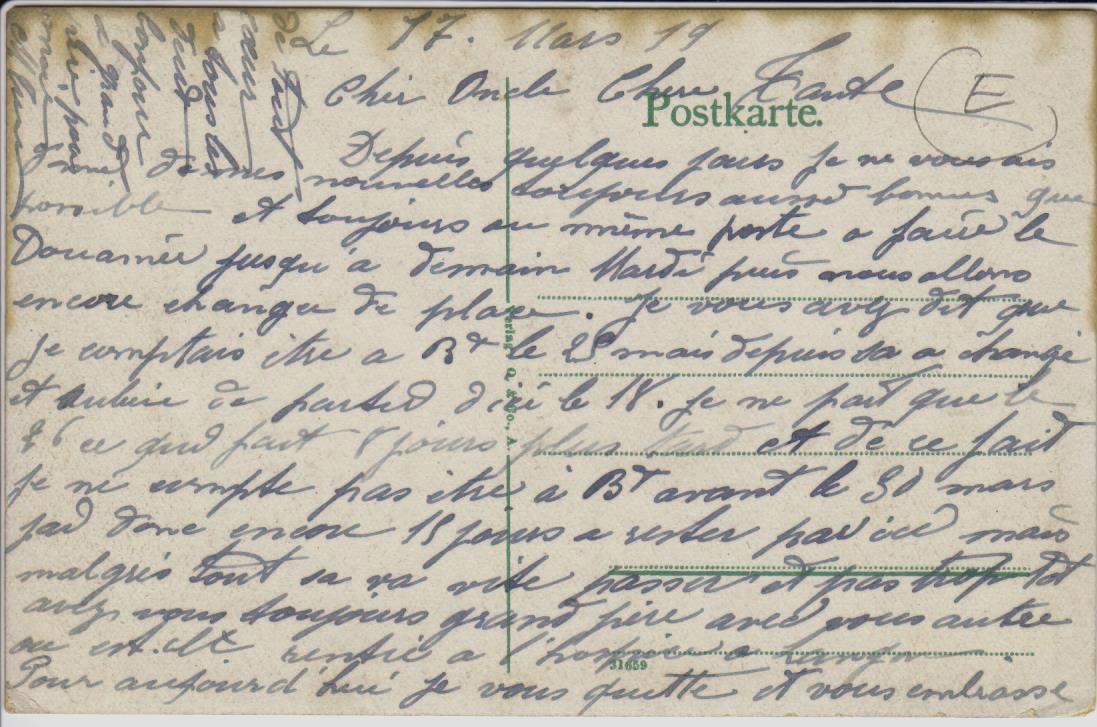 Le 17. Mars 19
Cher Oncle Chere Tante
Postkarte.
E
Depuis quelques jours je ne vous ais
donné de mes nouvelles toujours aussi bonnes que
possible et toujours au même poste a faire le
Douanier jusqu'a demain Mardi puis nous allons
encore changer de place. Je vous avez dit que
je comptais etre a Bt le 25 mais depuis sa a changé
et au lieu de partir d'ici le 18. je ne part que le
26 ce qui fait 8 jours plus tard et de ce fait
je ne compte pas etre à Bt avant le 30 mars
jai donc encore 15 jours a rester par ici mais
malgrés tout sa va vite passer et pas trop tot
avez vous toujours grand père avec vous autre
ou est.il rentré a l'hospice a
Pour aujourd hui je vous quitte et vous embrasse
de tout
cœur
a tous les
deux
bonjour
a grand
père pour
moi
31659